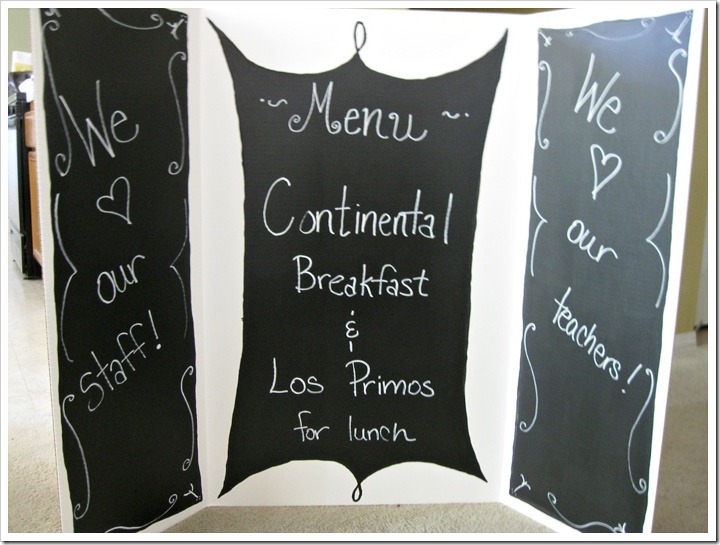 We
♡
our
Staff!
~ Menu ~
Continental
Breakfast
&
Los Primos
for lunch
We
♡
our
teachers!